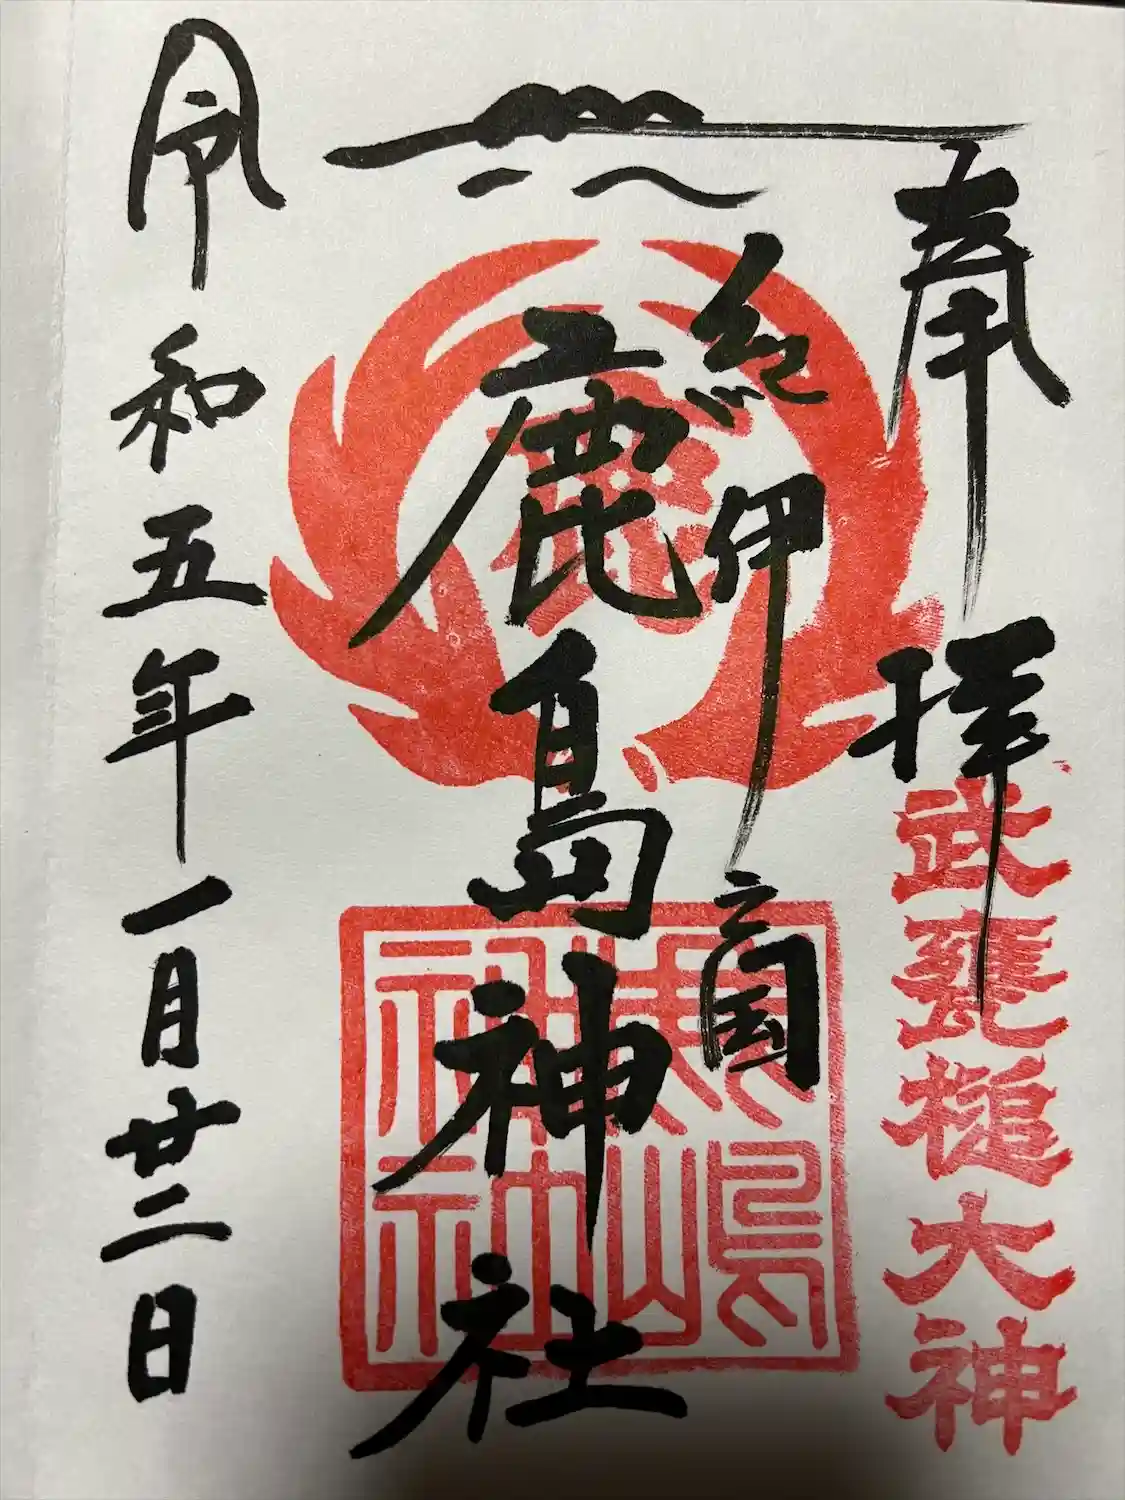 奉拝
武甕槌大神
紀伊之国
鹿島神社
鹿嶋神社
令和五年一月廿二日